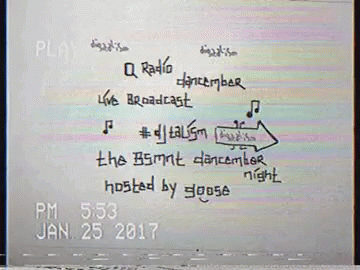 PLAY
digitalism digitalism
Q Radio
dancember
Live Broadcast
# dj talism digitalism
the Bsmnt dancember
night
hosted by goose
PM 5:53
JAN. 25 2017